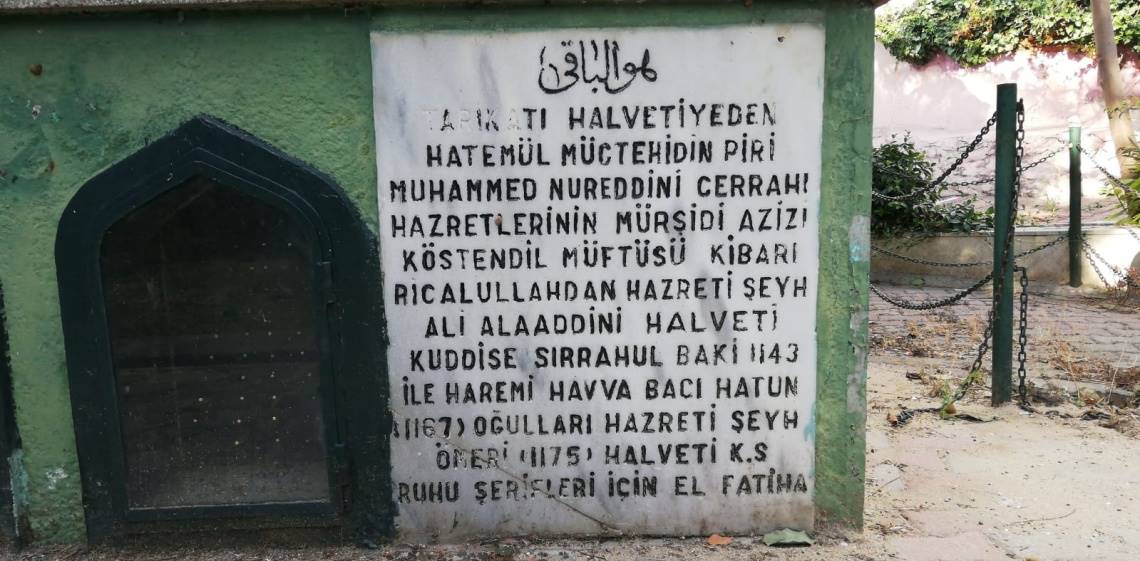 هو الباقي
TARIKATI HALVETİYEDEN
HATEMÜL MÜCTEHİDİN PİRİ
MUHAMMED NUREDDİNİ CERRAHI
HAZRETLERİNİN MÜRŞİDİ AZİZİ
KÖSTENDİL MÜFTÜSÜ KİBARI
RICALULLAHDAN HAZRETİ ŞEYH
ALİ ALAADDİNİ HALVETİ
KUDDİSE SIRRAHUL BAKİ 1143
İLE HAREMİ HAVVA BACI HATUN
(1167) OĞULLARI HAZRETİ ŞEYH
ÖMERİ (1175) HALVETİ K.S
RUHU ŞERİFLERİ İÇİN EL FATİHA